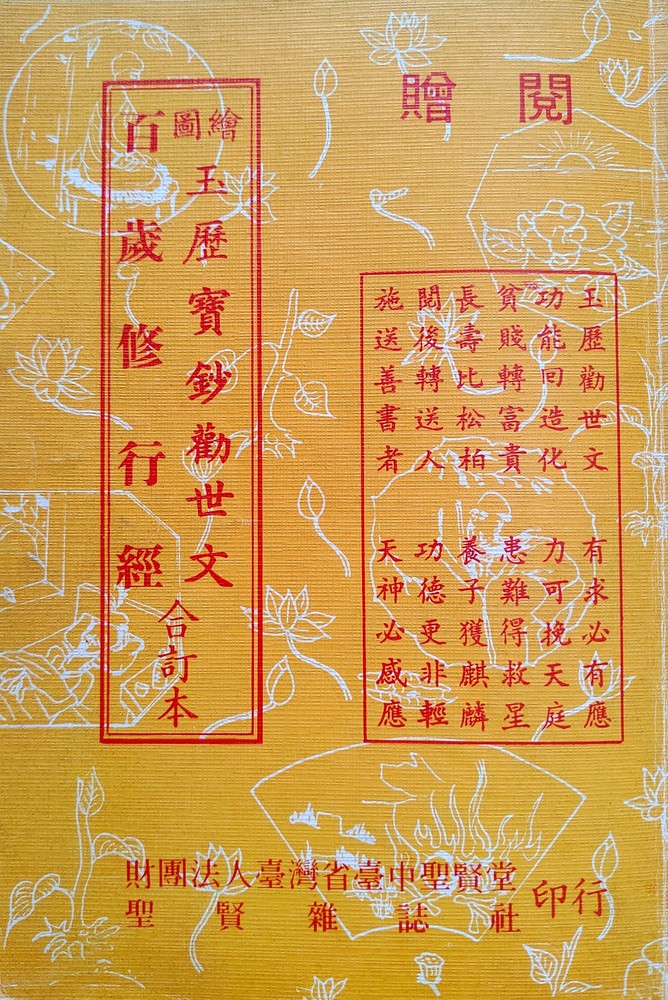 贈閱
玉歷勸世文 有求必有應
功能回造化 力可挽天庭
貧賤轉富貴 患難得救星
長壽比松柏 養子獲麒麟
閱後轉送人 功德更非輕
施送善書者 天神必感應
繪圖
玉歷寶鈔勸世文
百歲修行經
合訂本
財團法人臺灣省臺中聖賢堂
聖賢雜誌社
印行